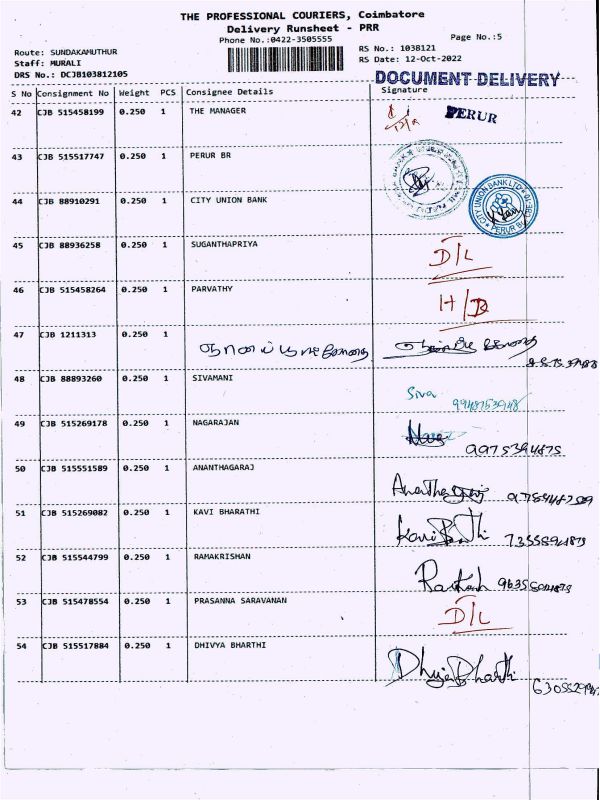 THE PROFESSIONAL COURIERS, Coimbatore
Delivery Runsheet - PRR
Phone No.:0422-3505555
Page No.:5
Route: SUNDAKAMUTHUR
RS No.: 1038121
Staff: MURALI
RS Date: 12-Oct-2022
DRS No.: DCJB103812105
DOCUMENT DELIVERY
S No Consignment No Weight PCS Consignee Details Signature
42 CJB 515458199 0.250 1 THE MANAGER PERUR
43 CJB 515517747 0.250 1 PERUR BR
44 CJB 88910291 0.250 1 CITY UNION BANK CITY UNION BANK LTD PERUR
45 CJB 88936258 0.250 1 SUGANTHAPRIYA D/L
46 CJB 515458264 0.250 1 PARVATHY H/D
47 CJB 1211313 0.250 1
48 CJB 88893260 0.250 1 SIVAMANI Siva
49 CJB 515269178 0.250 1 NAGARAJAN
50 CJB 515551589 0.250 1 ANANTHAGARAJ
51 CJB 515269082 0.250 1 KAVI BHARATHI
52 CJB 515544799 0.250 1 RAMAKRISHAN
53 CJB 515478554 0.250 1 PRASANNA SARAVANAN D/L
54 CJB 515517884 0.250 1 DHIVYA BHARTHI